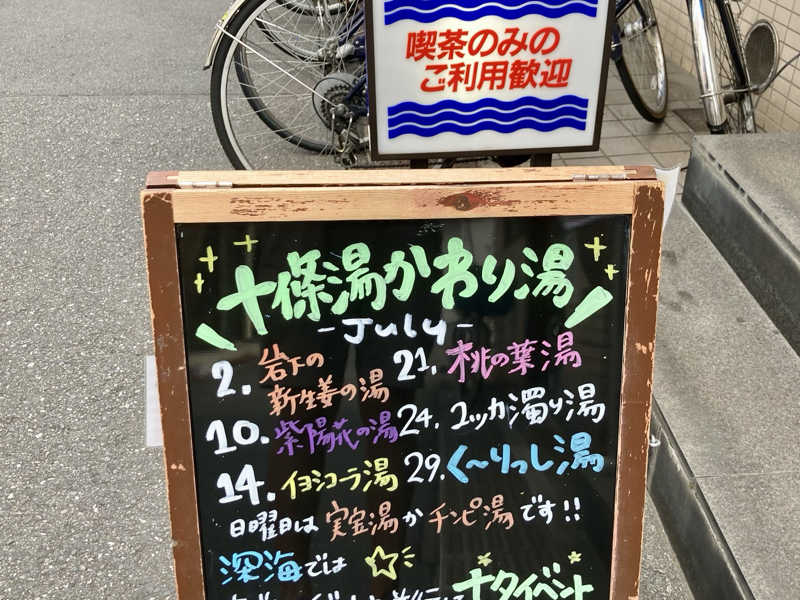 喫茶のみの
ご利用歓迎
十條湯かわり湯
-July-
2. 岩下の
新生姜の湯
10. 紫陽花の湯
14. イヨシコーラ湯
21. 桃の葉湯
24. ユッカ濁り湯
29. く〜りっし湯
日曜日は 実宝湯か チンピ湯です!!
深海では
ナタイベント